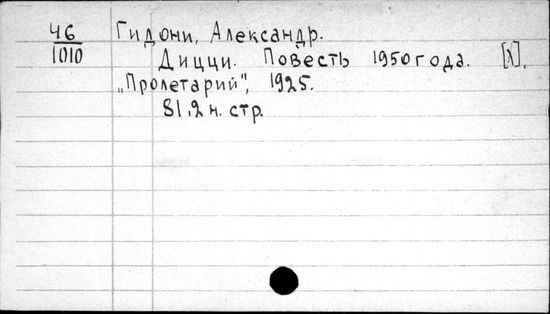 Ч6 Гидони, Александр.
1010 Дицци. Повесть 1950 года. [Х].
„Пролетарий", 1925.
81.2 н. стр.